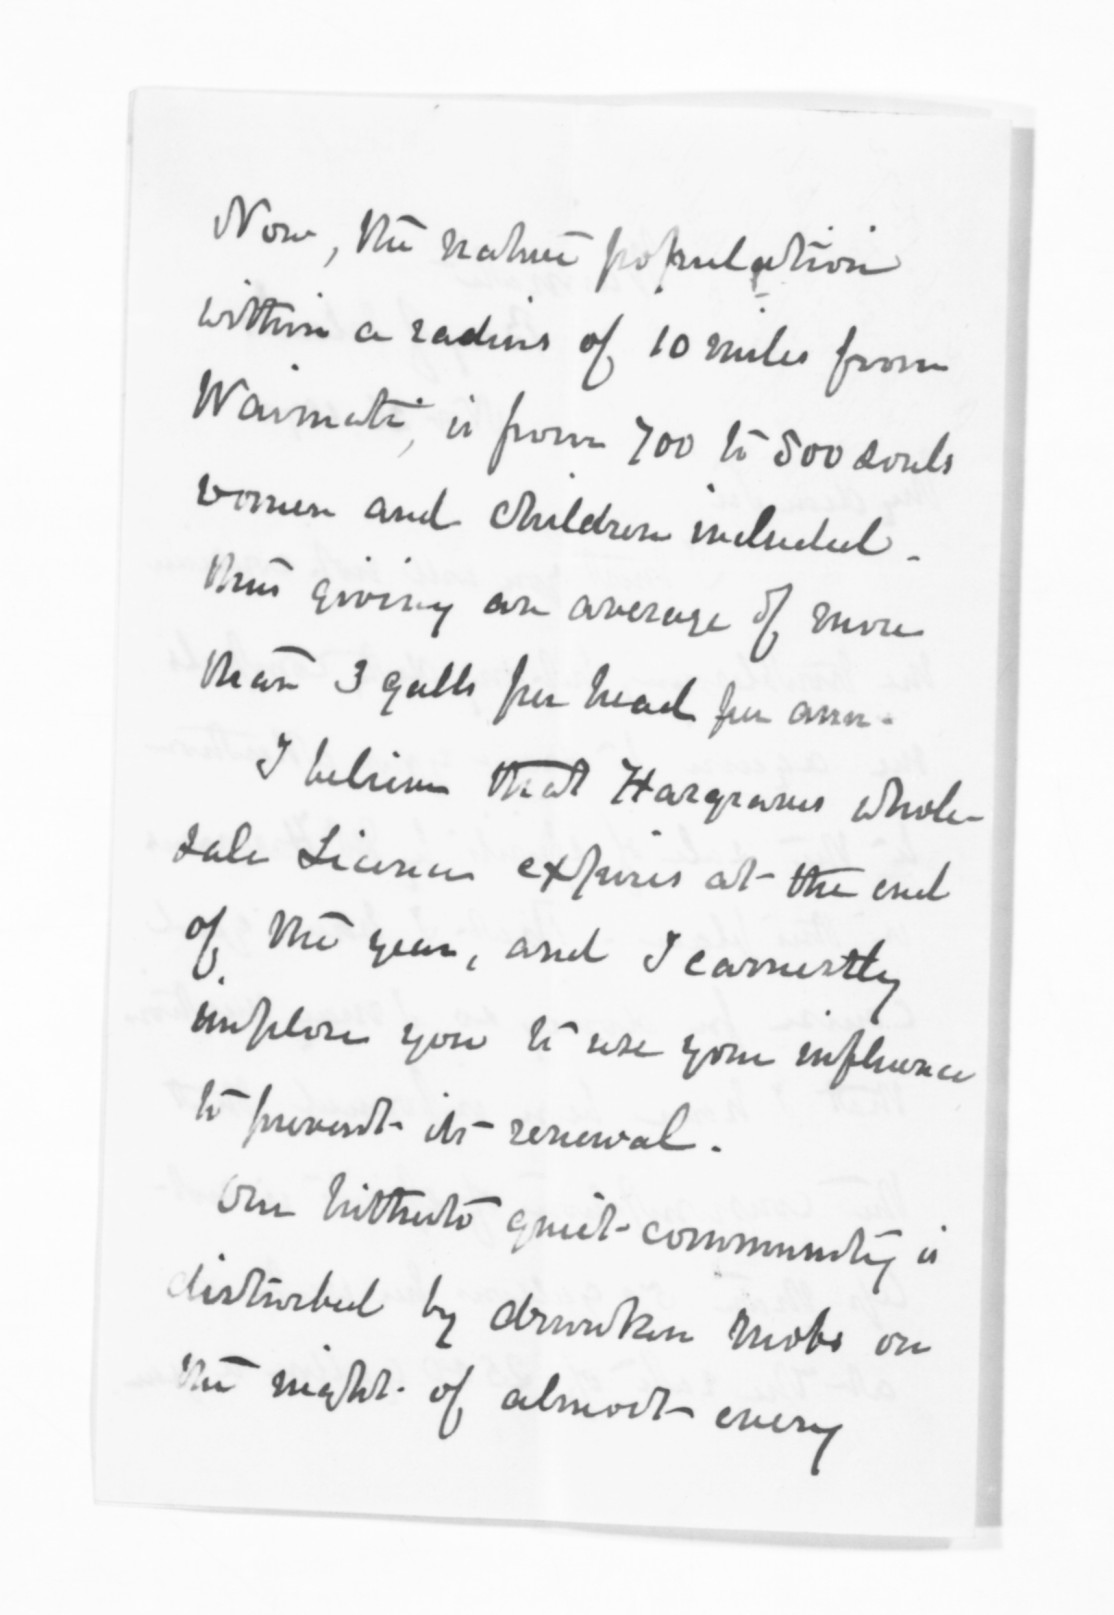 Now, the native population
within a radius of 10 miles from
Waimate, is from 700 to 800 souls
women and children included.
thus giving an average of more
than 3 galls per head per ann.
I believe that Hargraves whole-
sale Licence expires at the end
of the year, and I earnestly
implore you to use your influence
to prevent its renewal.
Our hitherto quiet community is
disturbed by drunken mobs on
the night of almost every